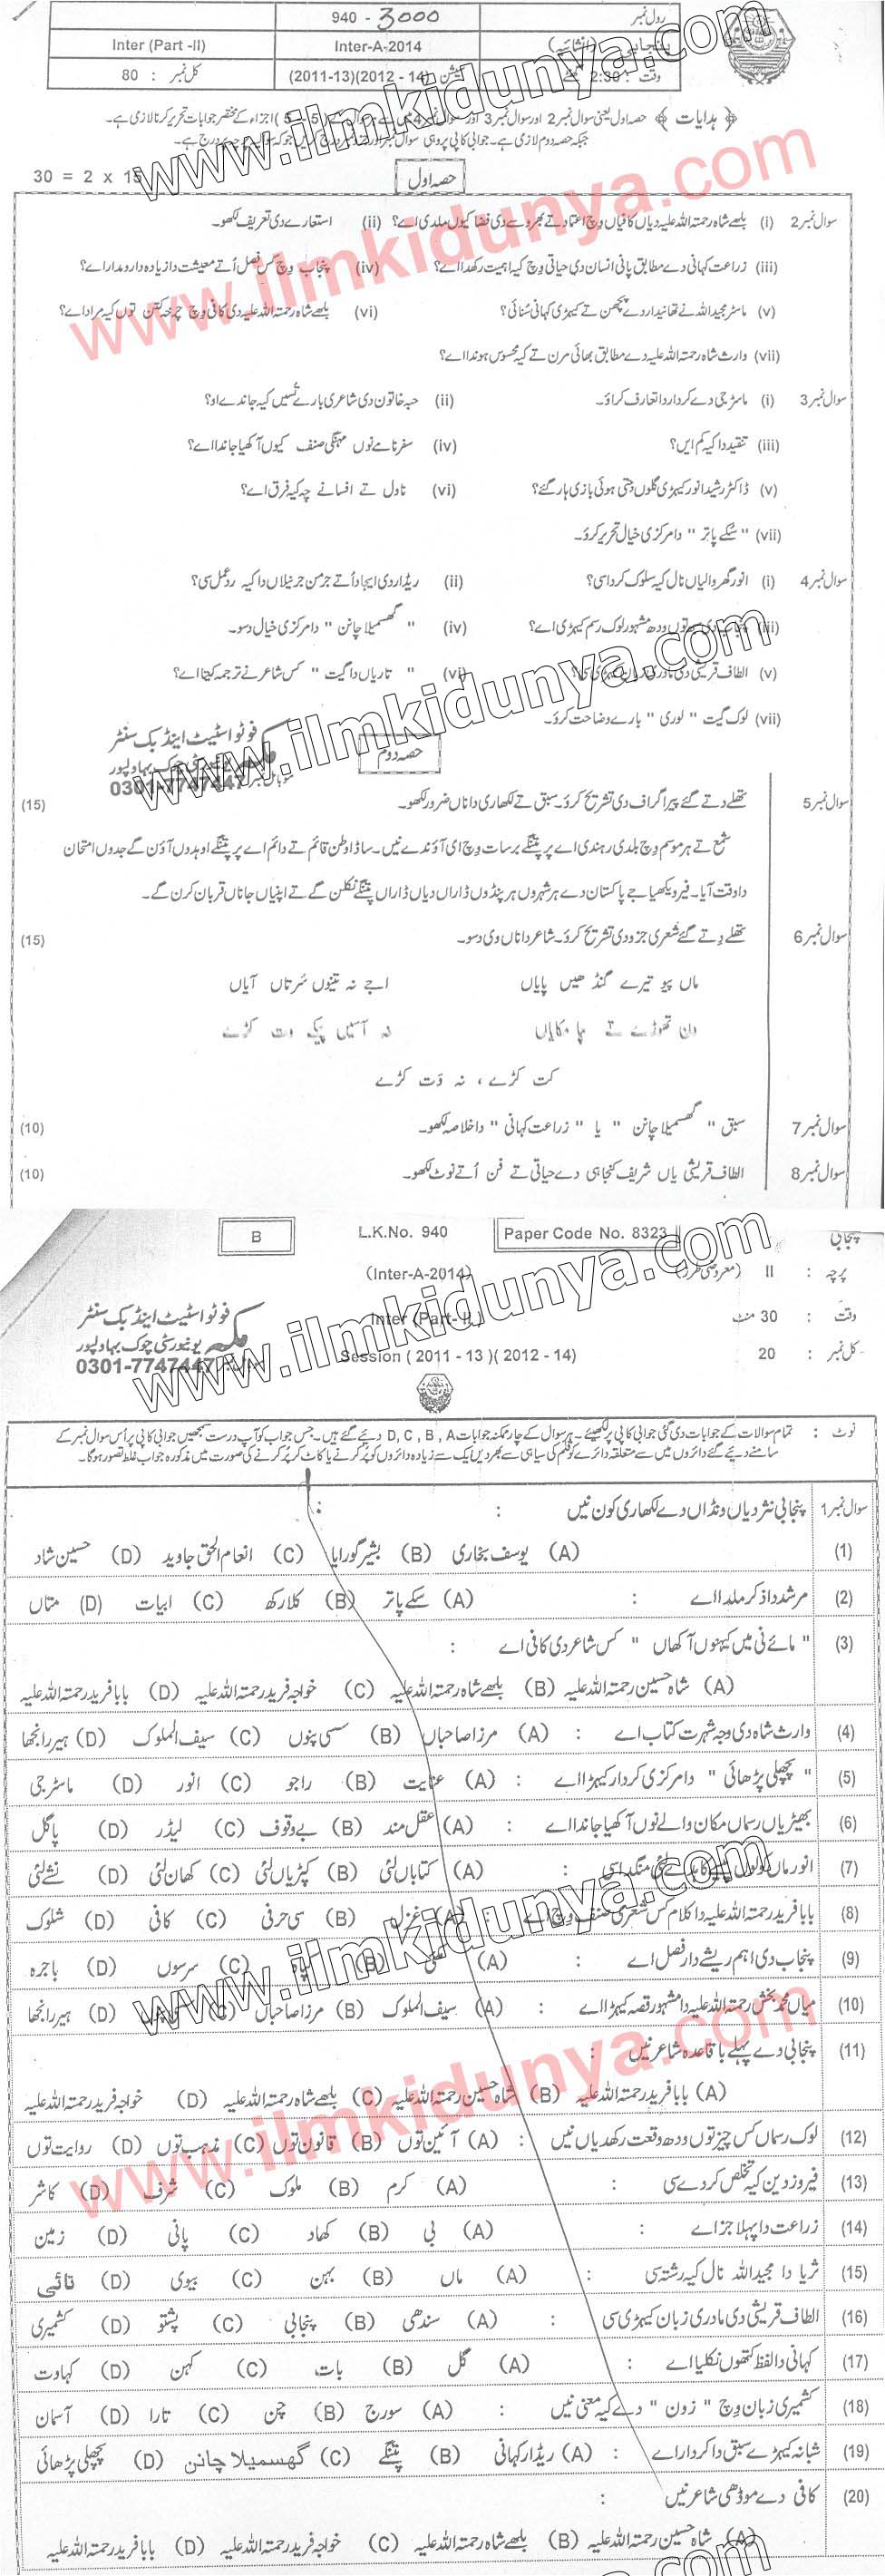 940 - 3000
رول نمبر
Inter (Part -II)
Inter-A-2014
پنجابی (انشائیہ)
کل نمبر : 80
سیشن (14 - 2012)(13-2011)
وقت : 2:30
جبکہ حصہ دوم لازمی ہے۔
30 = 2 x 15
حصہ اول
سوال نمبر 2 (i) بلھے شاہ رحمتہ اللہ علیہ دیاں کافیاں وچ اعتماد تے بھروسے دی فضا کیوں ملدی اے؟ (ii) استعارے دی تعریف لکھو۔
(iii) زراعت کہانی دے مطابق پانی انسان دی حیاتی وچ کیہ اہمیت رکھدا اے؟ (iv) پنجاب وچ کس فصل اُتے معیشت دا زیادہ دارومدار اے؟
(v) ماسٹر مجید اللہ نے تھانیدار دے پچھن تے کیہڑی کہانی سُنائی؟ (vi) بلھے شاہ رحمتہ اللہ علیہ دی کافی وچ چرخہ کتن توں کیہ مراد اے؟
(vii) وارث شاہ رحمتہ اللہ علیہ دے مطابق بھائی مرن تے کیہ محسوس ہوندا اے؟
سوال نمبر 3 (i) ماسٹر جی دے کردار دا تعارف کراؤ۔ (ii) حبہ خاتون دی شاعری بارے تُسیں کیہ جاندے او؟
(iii) تنقید دا کیہ کم ایں؟ (iv) سفر نامے نوں مہنگی صنف کیوں آکھیا جاندا اے؟
(v) ڈاکٹر رشید انور کیہڑی گلوں جتی ہوئی بازی ہار گئے؟ (vi) ناول تے افسانے چہ کیہ فرق اے؟
(vii) " سُکے پاتر " دا مرکزی خیال تحریر کرؤ۔
سوال نمبر 4 (i) انور گھر والیاں نال کیہ سلوک کردا سی؟ (ii) ریڈار دی ایجاد اُتے جرمن جرنیلاں دا کیہ ردِعمل سی؟
(iii) توں ودھ مشہور لوک رسم کیہڑی اے؟ (iv) " گھسمیلا چانن " دا مرکزی خیال دسو۔
(v) الطاف قریشی دی مادری زبان کیہڑی سی؟ (vi) " تاریاں دا گیت " کس شاعر نے ترجمہ کیتا اے؟
(vii) لوک گیت " لوری " بارے وضاحت کرؤ۔
فوٹو اسٹیٹ اینڈ بک سنٹر
یونیورسٹی چوک بہاولپور
0301-7747447
حصہ دوم
سوال نمبر 5 تھلے دتے گئے پیراگراف دی تشریح کرؤ۔ سبق تے لکھاری دا ناں ضرور لکھو۔ (15)
شمع تے ہر موسم وچ بلدی رہندی اے پر پتنگے برسات وچ ای آؤندے نیں۔ ساڈا وطن قائم تے دائم اے پر پتنگے اوہدوں آؤن گے جدوں امتحان
دا وقت آیا۔ فیر ویکھیا جے پاکستان دے ہر شہروں ہر پنڈوں ڈاراں دیاں ڈاراں پتنگے نکلن گے تے اپنیاں جاناں قربان کرن گے۔
سوال نمبر 6 تھلے دِتے گئے شعری جزو دی تشریح کرؤ۔ شاعر دا ناں وی دسو۔ (15)
ماں پیو تیرے گنڈھیں پایاں اجے نہ تینوں سُرتاں آیاں
دن تھوڑے تے چا مُکایاں نہ آسیں پیکے وت کڑے
کت کڑے ، نہ وَت کڑے
سوال نمبر 7 سبق " گھسمیلا چانن " یا " زراعت کہانی " دا خلاصہ لکھو۔ (10)
سوال نمبر 8 الطاف قریشی یاں شریف کنجاہی دے حیاتی تے فن اُتے نوٹ لکھو۔ (10)
B
L.K.No. 940
Paper Code No. 8323
پنجابی
(Inter-A-2014)
پرچہ : II (معروضی طرز)
Inter (Part-II)
وقت : 30 منٹ
Session (2011 - 13)(2012 - 14)
کل نمبر : 20
فوٹو اسٹیٹ اینڈ بک سنٹر
یونیورسٹی چوک بہاولپور
0301-7747447
نوٹ : تمام سوالات کے جوابات دی گئی جوابی کاپی پر لکھیئے۔ ہر سوال کے چار ممکنہ جوابات D, C, B, A دیئے گئے ہیں۔ جس جواب کو آپ درست سمجھیں جوابی کاپی پر اُس سوال نمبر کے
سامنے دیئے گئے دائروں میں سے متعلقہ دائرے کو قلم کی سیاہی سے بھر دیں ایک سے زیادہ دائروں کو پُر کرنے یا کاٹ کر پُر کرنے کی صورت میں مذکورہ جواب غلط تصور ہوگا۔
سوال نمبر 1 پنجابی نثر دیاں ونڈاں دے لکھاری کون نیں :
(1) (A) یوسف بخاری (B) بشیر گورایا (C) انعام الحق جاوید (D) حسین شاد
(2) مرشد دا ذکر ملدا اے : (A) سکے پاتر (B) کلارکھ (C) ابیات (D) متاں
(3) " مائے نی میں کیہنوں آکھاں " کس شاعر دی کافی اے :
(A) شاہ حسین رحمتہ اللہ علیہ (B) بلھے شاہ رحمتہ اللہ علیہ (C) خواجہ فرید رحمتہ اللہ علیہ (D) بابا فرید رحمتہ اللہ علیہ
(4) وارث شاہ دی وجہ شہرت کتاب اے : (A) مرزا صاحباں (B) سسی پنوں (C) سیف الملوک (D) ہیر رانجھا
(5) " پچھلی پڑھائی " دا مرکزی کردار کیہڑا اے : (A) عنایت (B) راجو (C) انور (D) ماسٹر جی
(6) بھیڑیاں رسماں مکان والے نوں آکھیا جاندا اے : (A) عقل مند (B) بے وقوف (C) لیڈر (D) پاگل
(7) انور ماں کولوں منگدا سی : (A) کتاباں لئی (B) کپڑیاں لئی (C) کھان لئی (D) نشے لئی
(8) بابا فرید رحمتہ اللہ علیہ دا کلام کس شعری صنف وچ اے : (A) غزل (B) سی حرفی (C) کافی (D) شلوک
(9) پنجاب دی اہم ریشے دار فصل اے : (A) مکئی (B) کپاہ (C) سرسوں (D) باجرہ
(10) میاں محمد بخش رحمتہ اللہ علیہ دا مشہور قصہ کیہڑا اے : (A) سیف الملوک (B) مرزا صاحباں (C) (D) ہیر رانجھا
(11) پنجابی دے پہلے باقاعدہ شاعر نیں :
(A) بابا فرید رحمتہ اللہ علیہ (B) شاہ حسین رحمتہ اللہ علیہ (C) بلھے شاہ رحمتہ اللہ علیہ (D) خواجہ فرید رحمتہ اللہ علیہ
(12) لوک رسماں کس چیز توں ودھ وقعت رکھدیاں نیں : (A) آئین توں (B) قانون توں (C) مذہب توں (D) روایت توں
(13) فیروز دین کیہ تخلص کردے سی : (A) کرم (B) ملوک (C) شرف (D) کاشر
(14) زراعت دا پہلا جز اے : (A) بی (B) کھاد (C) پانی (D) زمین
(15) ثریا دا مجید اللہ نال کیہ رشتہ سی : (A) ماں (B) بہن (C) بیوی (D) تائی
(16) الطاف قریشی دی مادری زبان کیہڑی سی : (A) سندھی (B) پنجابی (C) پشتو (D) کشمیری
(17) کہانی دا لفظ کتھوں نکلیا اے : (A) گل (B) بات (C) کہن (D) کہاوت
(18) کشمیری زبان وچ " زون " دے کیہ معنی نیں : (A) سورج (B) چن (C) تارا (D) آسمان
(19) شبانہ کیہڑے سبق دا کردار اے : (A) ریڈار کہانی (B) پتنگے (C) گھسمیلا چانن (D) پچھلی پڑھائی
(20) کافی دے موڈھی شاعر نیں :
(A) شاہ حسین رحمتہ اللہ علیہ (B) بلھے شاہ رحمتہ اللہ علیہ (C) خواجہ فرید رحمتہ اللہ علیہ (D) بابا فرید رحمتہ اللہ علیہ
www.ilmkidunya.com
www.ilmkidunya.com
www.ilmkidunya.com
www.ilmkidunya.com
www.ilmkidunya.com
www.ilmkidunya.com